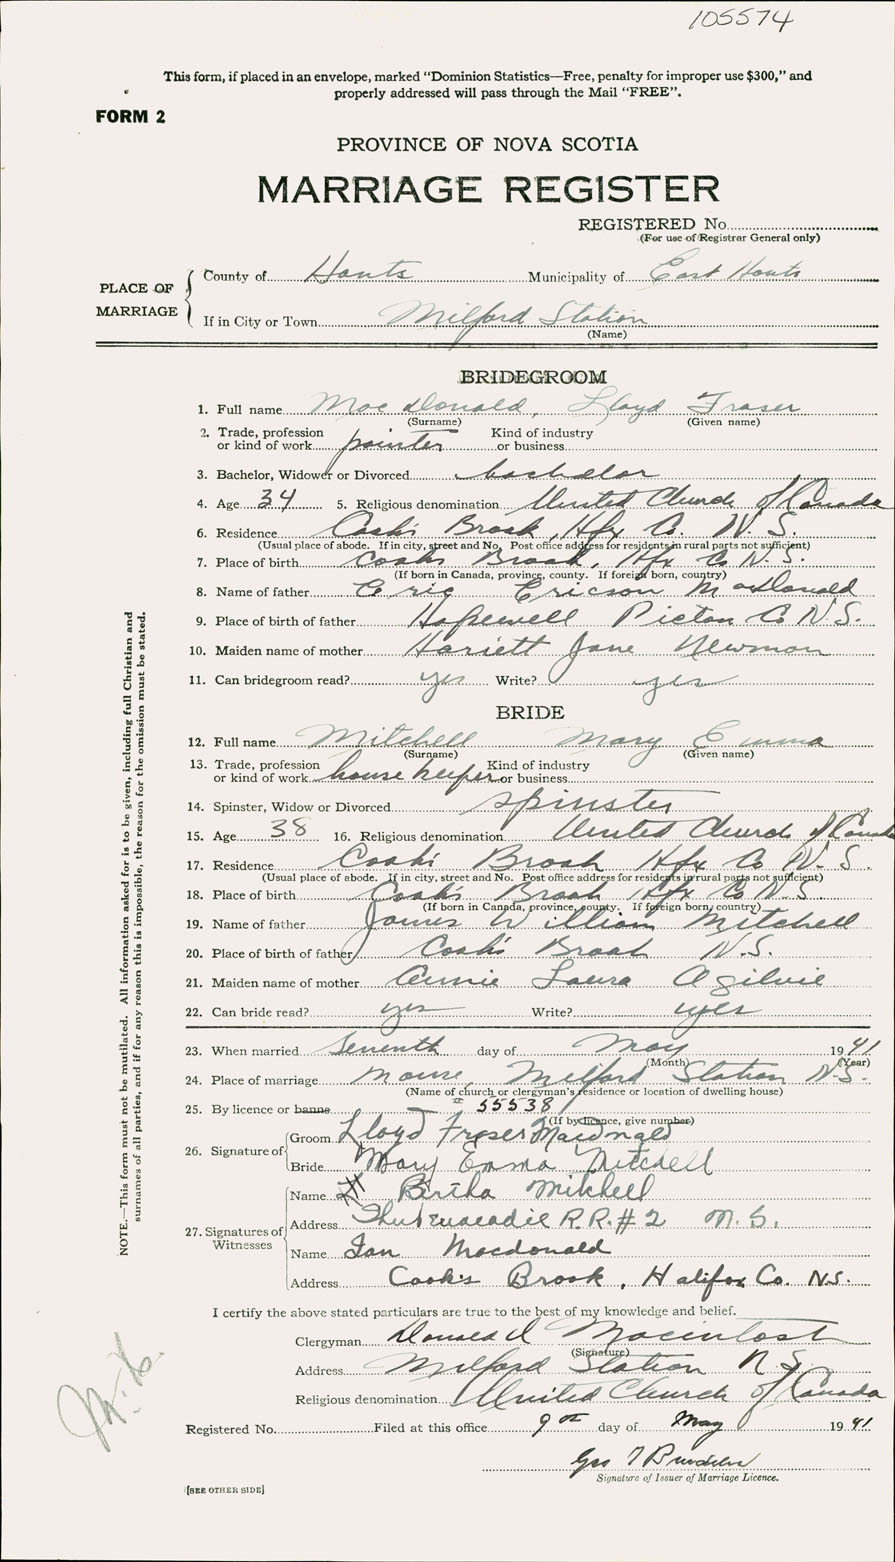 105574
This form, if placed in an envelope, marked “Dominion Statistics—Free, penalty for improper use $300,” and
properly addressed will pass through the Mail “FREE”.
FORM 2
PROVINCE OF NOVA SCOTIA
MARRIAGE REGISTER
REGISTERED No.
(For use of Registrar General only)
PLACE OF MARRIAGE
County of Hants Municipality of East Hants
If in City or Town Milford Station
(Name)
BRIDEGROOM
1. Full name MacDonald, Lloyd Fraser
(Surname) (Given name)
2. Trade, profession or kind of work painter Kind of industry or business
3. Bachelor, Widower or Divorced bachelor
4. Age 34 5. Religious denomination United Church of Canada
6. Residence Cook's Brook, Hfx Co. N. S.
(Usual place of abode. If in city, street and No. Post office address for residents in rural parts not sufficient)
7. Place of birth Cooks Brook, Hfx Co N. S.
(If born in Canada, province, county. If foreign born, country)
8. Name of father Eric Ericson MacDonald
9. Place of birth of father Hopewell Pictou Co N.S.
10. Maiden name of mother Hariett Jane Newman
11. Can bridegroom read? yes Write? yes
BRIDE
12. Full name Mitchell Mary Emma
(Surname) (Given name)
13. Trade, profession or kind of work house keeper Kind of industry or business
14. Spinster, Widow or Divorced spinster
15. Age 38 16. Religious denomination United Church of Canada
17. Residence Cook's Brook Hfx Co N. S.
(Usual place of abode. If in city, street and No. Post office address for residents in rural parts not sufficient)
18. Place of birth Cook's Brook Hfx Co N.S.
(If born in Canada, province, county. If foreign born, country)
19. Name of father James William Mitchell
20. Place of birth of father Cook's Brook N.S.
21. Maiden name of mother Annie Laura Ogilvie
22. Can bride read? yes Write? yes
23. When married Seventh day of May 1941
(Month) (Year)
24. Place of marriage Manse, Milford Station N.S.
(Name of church or clergyman's residence or location of dwelling house)
25. By licence or banns 55538
(If by licence, give number)
26. Signature of
Groom Lloyd Fraser Macdonald
Bride Mary Emma Mitchell
27. Signatures of Witnesses
Name Bertha Mitchell
Address Shubenacadie R.R. # 2 N. S.
Name Ian Macdonald
Address Cook's Brook, Halifax Co. N.S.
I certify the above stated particulars are true to the best of my knowledge and belief.
Clergyman Donald Macintosh
(Signature)
Address Milford Station N S
Religious denomination United Church of Canada
Registered No. Filed at this office 9th day of May 1941
Geo
Signature of Issuer of Marriage Licence.
[SEE OTHER SIDE]
NOTE.—This form must not be mutilated. All information asked for is to be given, including full Christian and
surnames of all parties, and if for any reason this is impossible, the reason for the omission must be stated.